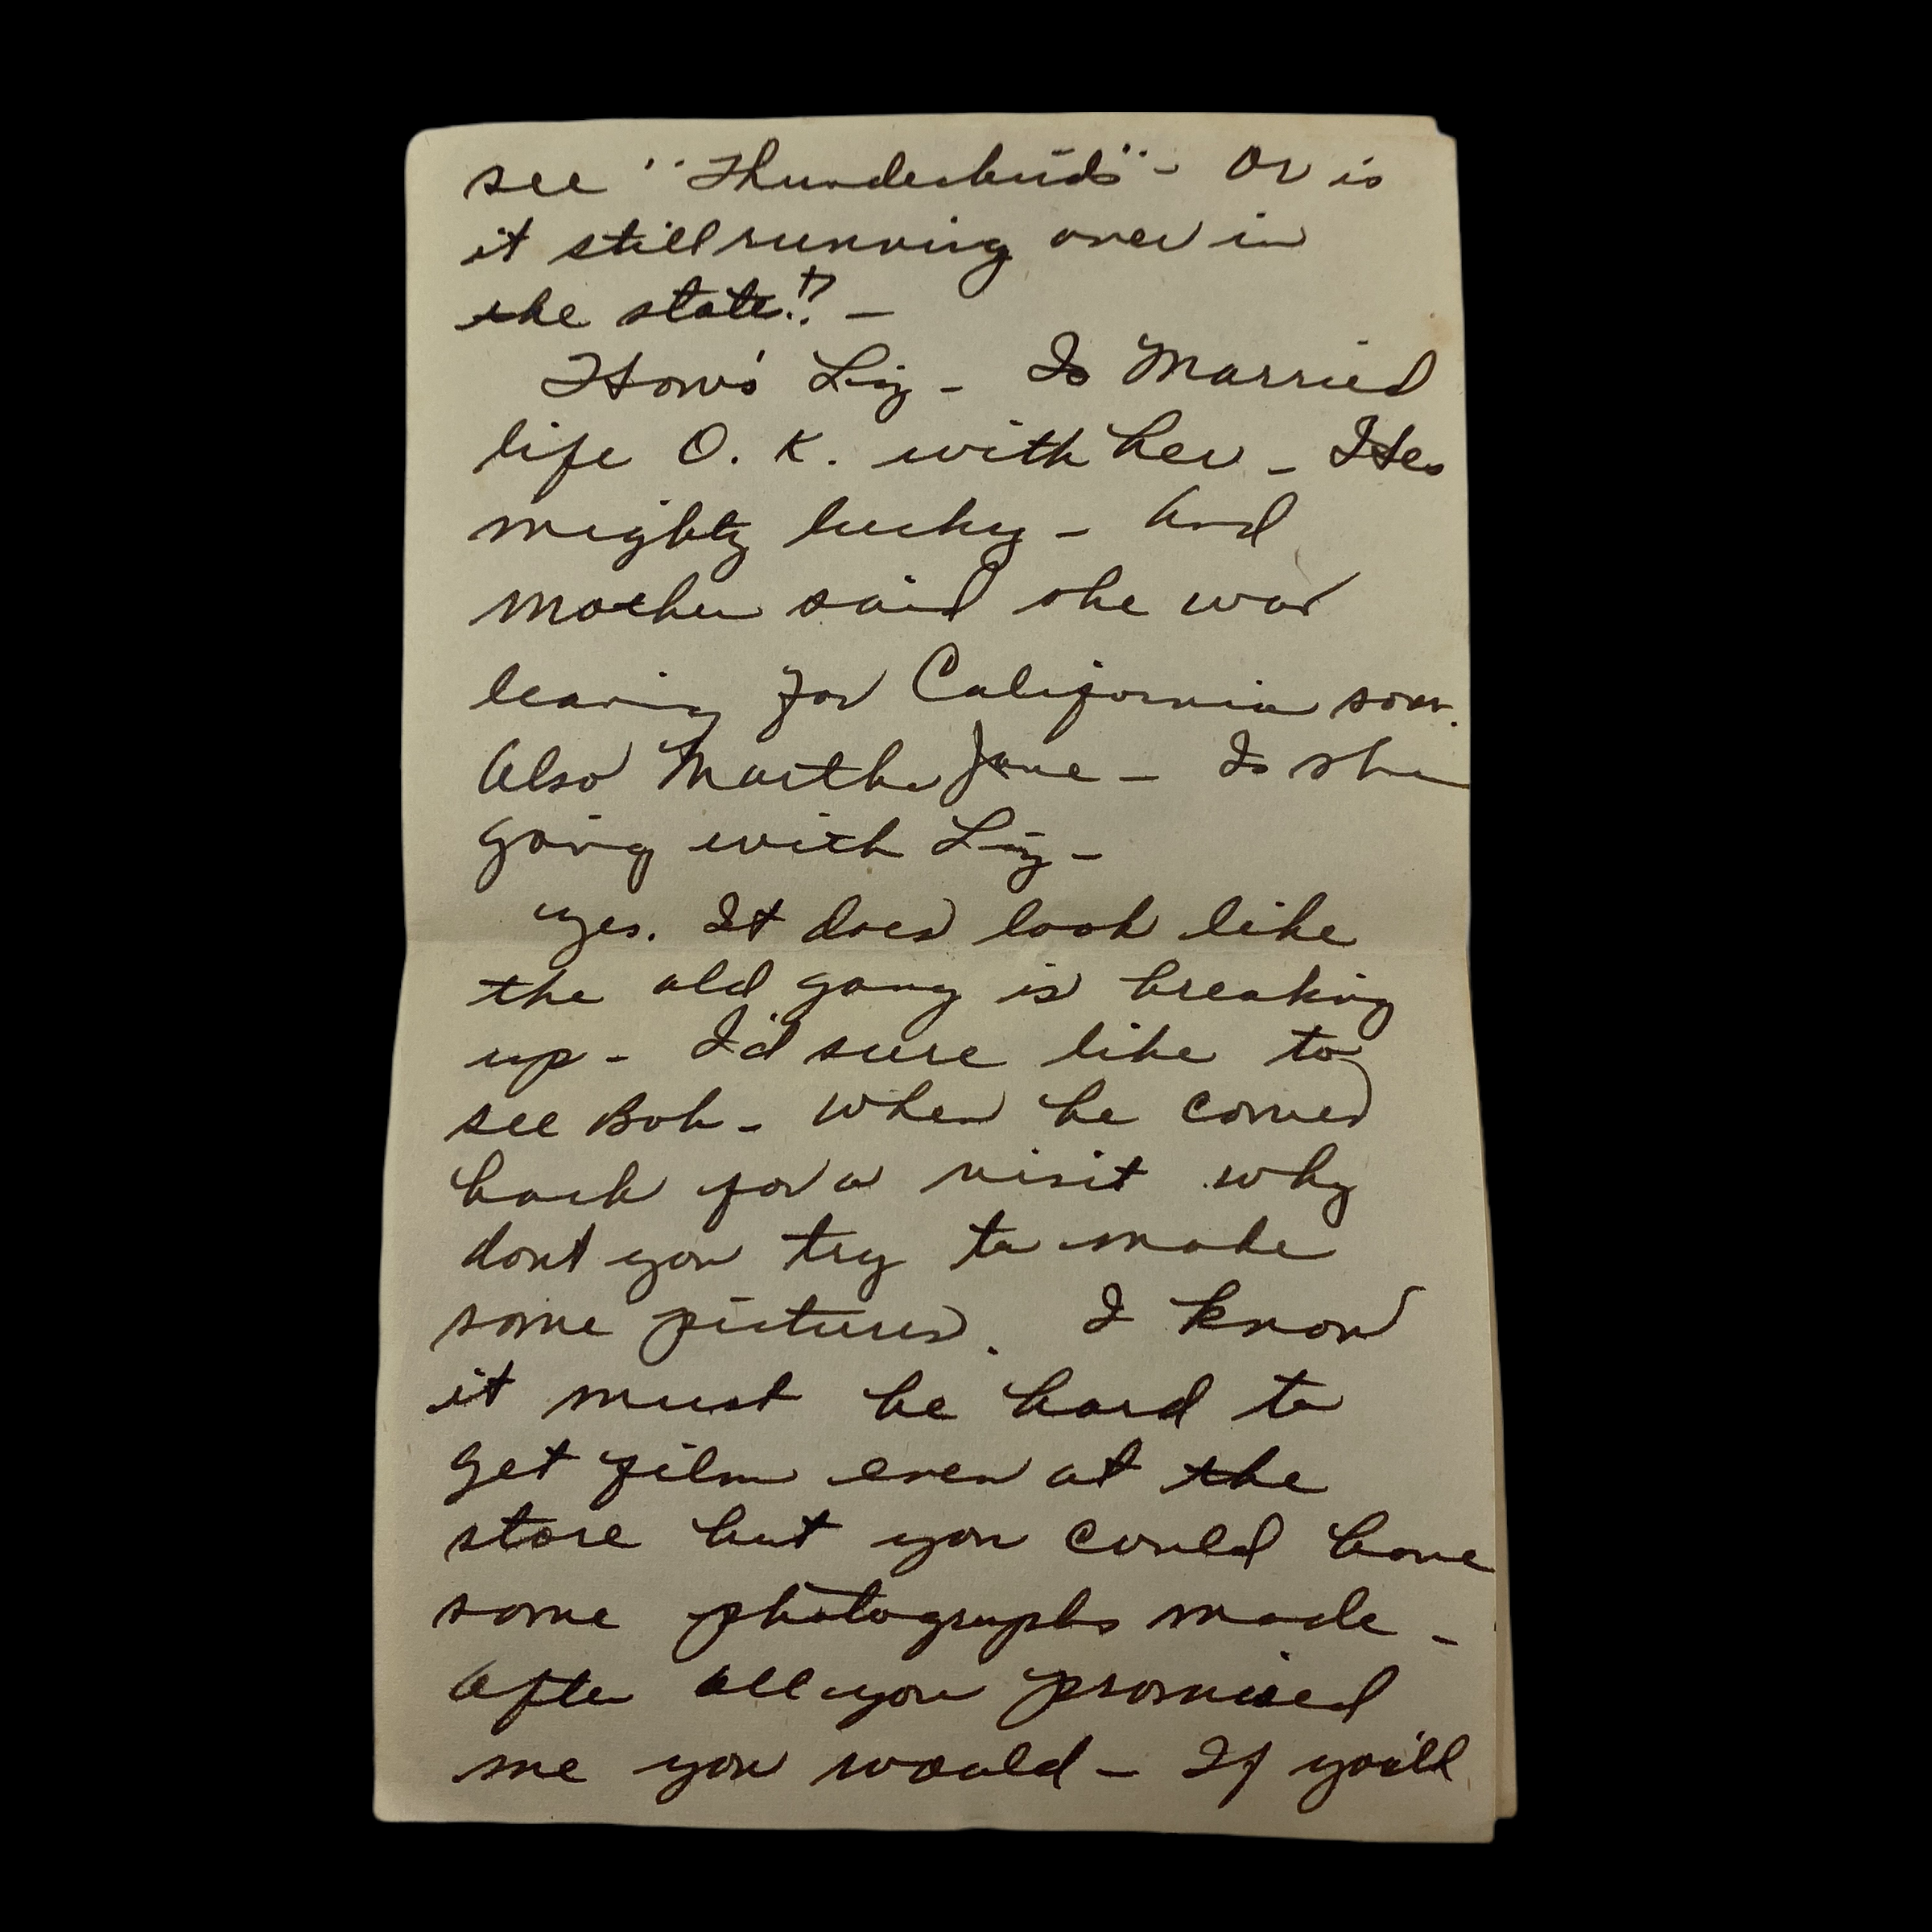 see "Thunderbirds" - Or is
it still running over in
the state!? -
How's Liz - Is Married
life O. K. with her - Hes
mighty lucky - And
mother said she was
leaving for California soon.
Also Martha Jane - Is she
going with Liz -
Yes. It does look like
the old gang is breaking
up - I'd sure like to
see Bob - When he comes
back for a visit why
dont you try to make
some pictures. I know
it must be hard to
get film even at the
store but you could have
some photographs made -
After all you promised
me you would - If you'll